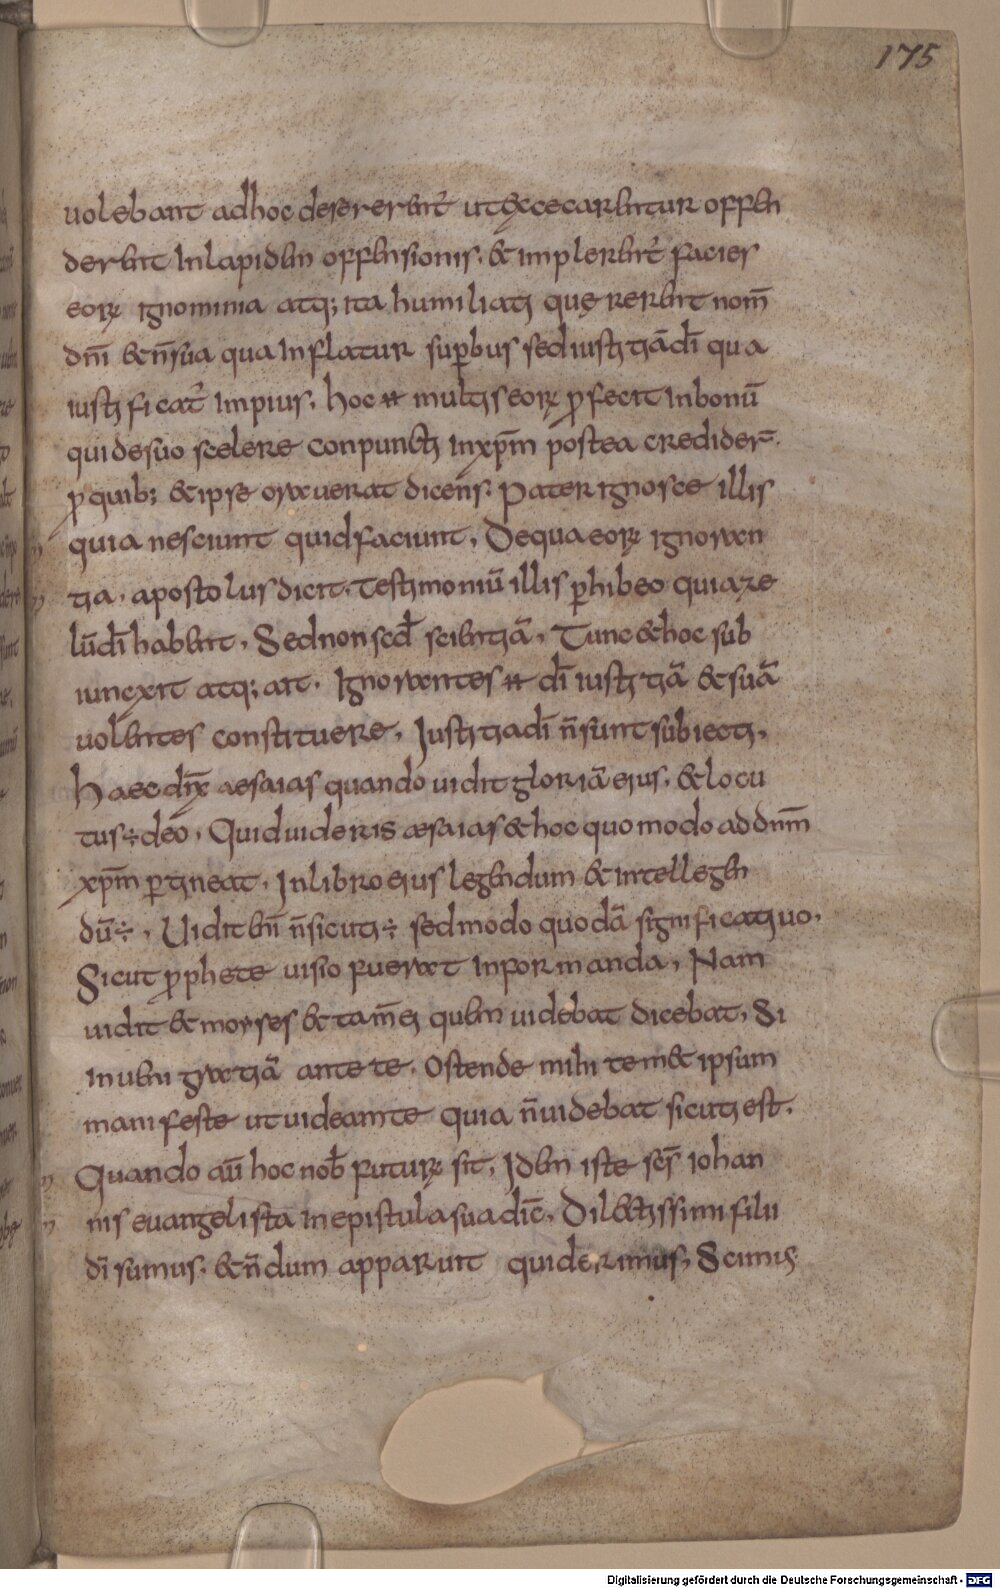 175
uolebant adhoc desererent̉ ut excecarentur offen
derent Inlapidem offensionis. & implerent̉ facies
eorꝝ ignominia atq; ita humiliati quęrerent nom̄
dn̄i &n̄sua qua Inflatur sup̄bus sediustitiādī qua
iustificat̉ Impius. hoc ꞇꞇ multis eorꝝ ꝓfecit Inbonū
quidesuo scelere conpuncti Inxp̄m postea credider̄.
ꝓquib; &ipse orauerat dicens. Pater ignosce illis
quia nesciunt quidfaciunt. Dequa eorꝝ ignoran
tia. apostolus dicit. Testimoniū illis ꝑhibeo quiaze
lūdī habent. Sednon scd̄ scientiā. Tunc &hoc sub
iunexit atq; ait. Ignorantes ꞇꞇ dī iustitiā &suā
uolentes constituere. Iustitiadī n̄sunt subiecti.
Haec dix̄ aesaias quando uidit gloriā eius. &locu
tus÷deo. Quiduideris æsaias &hoc quomodo addnm̄
xp̄m ꝑtineat. Inlibro eius legendum &intellegen
dū÷. Uidit en̄ n̄sicuti÷ sedmodo quodā significatiuo.
Sicut ꝓphete uisio fuerat Informanda. Nam
uidit &moyses &tam̄ ei quem videbat dicebat. Si
inueni gratiā ante te. Ostende mihi tem& ipsum
manifeste utuideamte quia n̄uidebat sicuti est.
Quando aū hoc nob̄ futurꝝ sit. Idem iste scs̄ iohan
nis euangelista Inepistula sua dic̄. Dilectissimi filii
dī sumus. &n̄dum apparuit quiderimus, Scimus
Digitalisierung gefördert durch die Deutsche Forschungsgemeinschaft - DFG